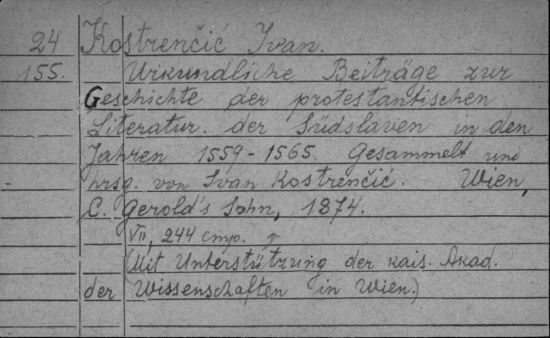 24 Kostrenčić Ivan.
155. Urkundliche Beiträge zur
Geschichte der protestantischen
Literatur. der Südslaven in den
Jahren 1559-1565. Gesammelt und
hrsg. von Ivan Kostrenčić. Wien,
C. Gerold's Sohn, 1874.
VII, 244 стр.
(Mit Unterstützung der kais. Akad.
der Wissenschaften in Wien.)